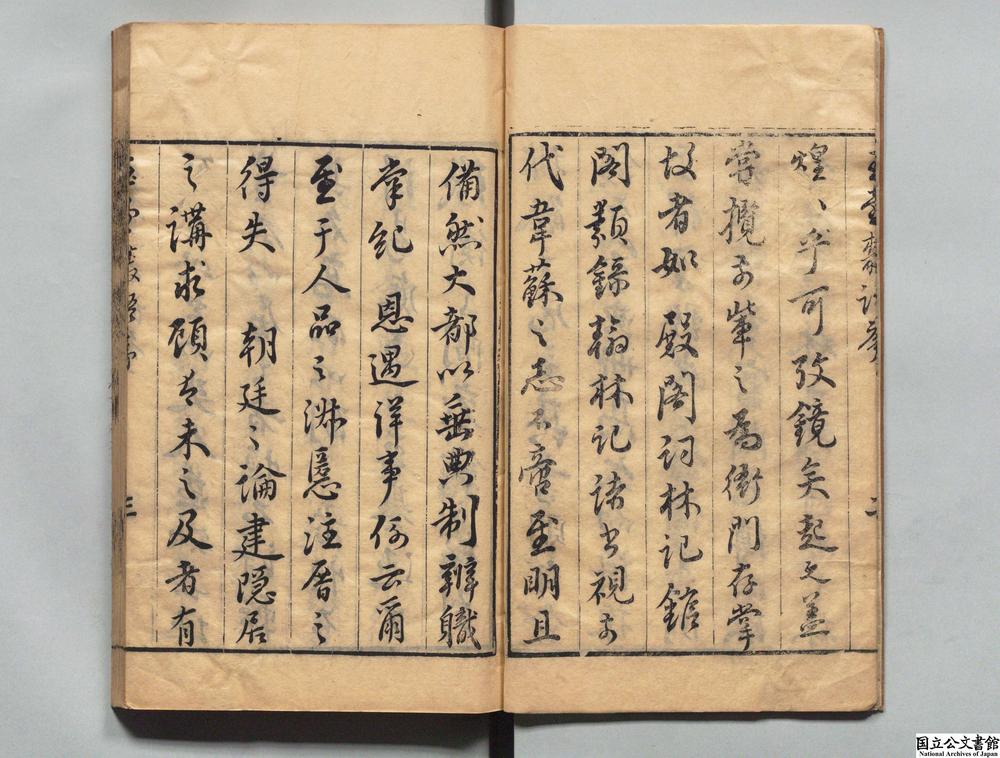 煌〻乎可攷鏡矣起元蓋
嘗攬予輩之為衙門存掌
故者如殿閣詞林記館
閣類錄翰林記諸書視前
代韋蘇之志不啻至明且
備然大都以垂典制辨職
掌紀 恩遇詳事例云爾
至于人品之淑慝注厝之
得失 朝廷之論建隱居
之講求顧有未之及者有
二
三
国立公文書館
National Archives of Japan